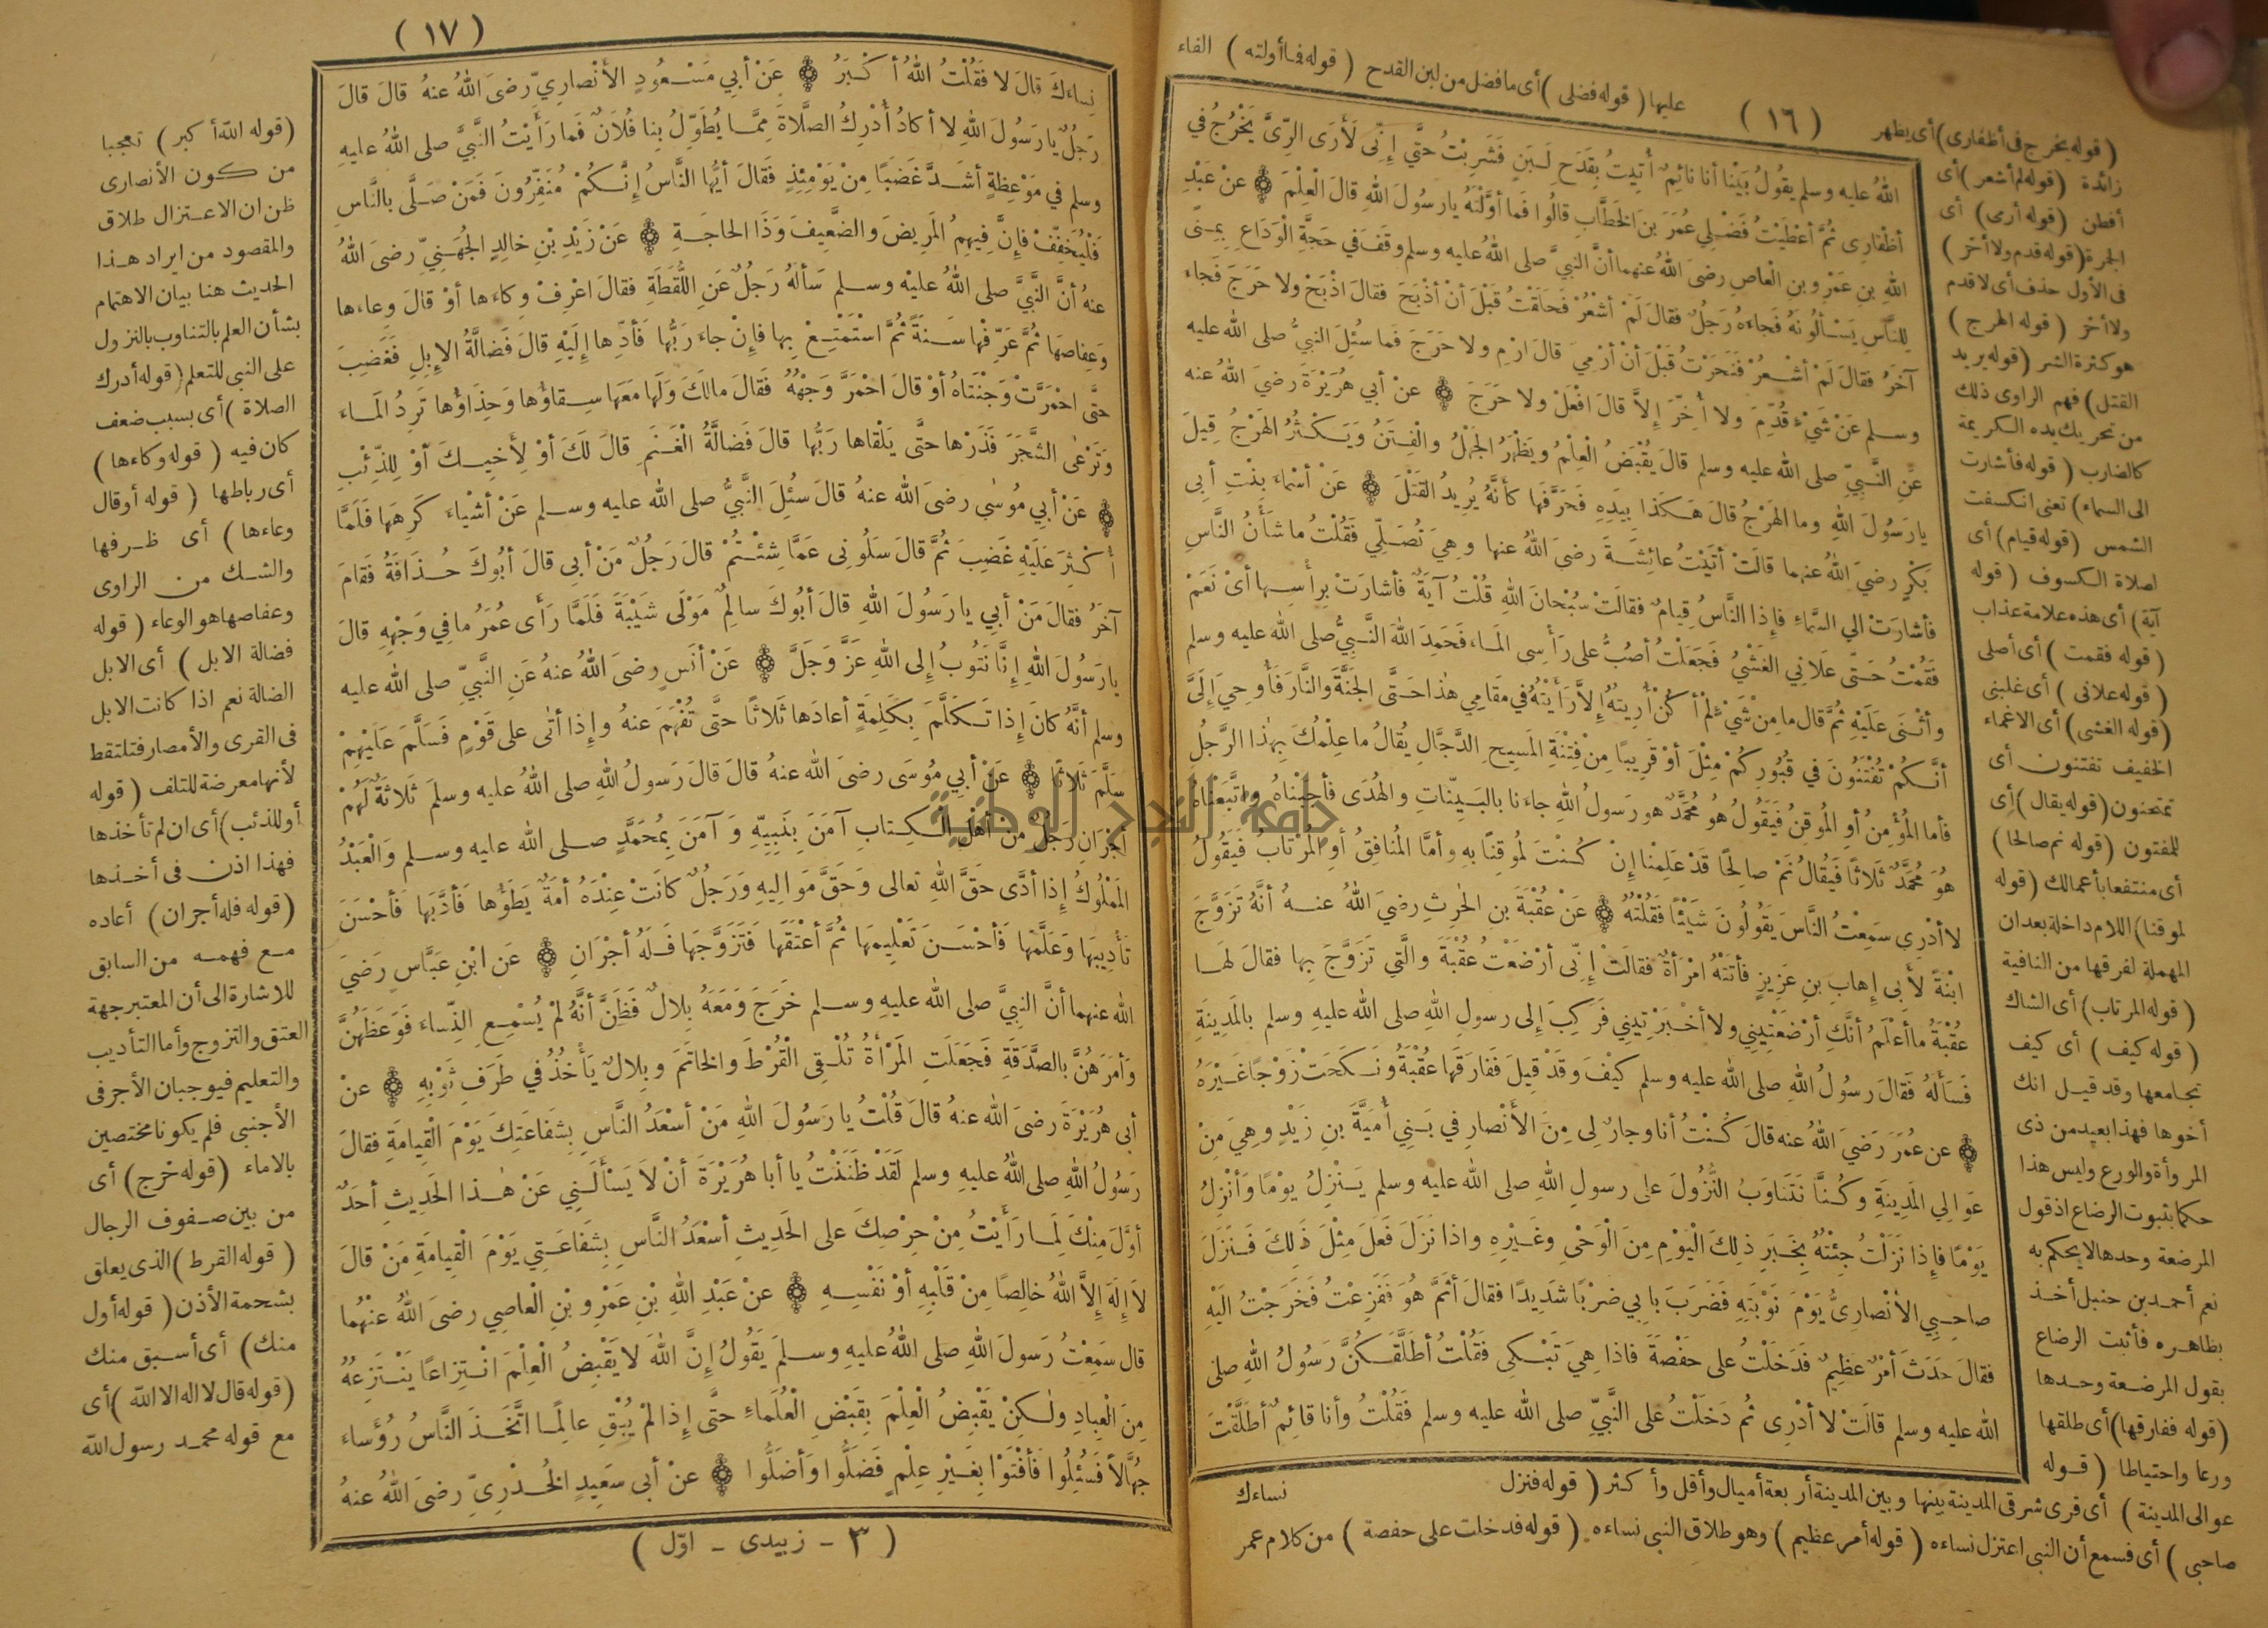 ( ١٦ )
الله عليه وسلم يقول بَيْنا أنا نائمٌ أُتِيتُ بِقَدَحِ لَبَنٍ فَشَرِبْتُ حتَّى إنِّى لَأَرَى الرِّىَّ يَخْرُجُ فى
أظْفارِى ثُمَّ أعْطَيْتُ فَضْلِى عُمَرَ بنَ الخَطَّابِ قالُوا فَما أوَّلْتَهُ يارسُولَ اللهِ قالَ الْعِلْمَ ۞ عنْ عَبْدِ
اللهِ بنِ عَمْرِو بنِ الْعاصِ رضىَ اللهُ عنهما أنَّ النبىَّ صلى اللهُ عليه وسلم وقَفَ فى حَجَّةِ الْوَدَاعِ بِمِنى
لِلنَّاسِ يَسْألُونَهُ فَجاءهُ رَجُلٌ فقالَ لَمْ أشْعُرْ فَحَلَقْتُ قَبْلَ أنْ أذْبَحَ فقالَ اذْبَحْ ولا حَرَجَ فَجاء
آخَرُ فقالَ لَمْ أشْعُرْ فَنَحَرْتُ قَبْلَ أنْ أرْمِىَ قالَ ارْمِ ولا حَرَجَ فَما سُئِلَ النبىُّ صلى الله عليه
وسلم عَنْ شَىْءٍ قُدِّمَ ولا أُخِّرَ إلاَّ قالَ افْعَلْ ولا حَرَجَ ۞ عنْ أبى هُرَيْرَةَ رضىَ اللهُ عنه
عَنِ النَّبِىِّ صلى الله عليه وسلم قالَ يُقْبَضُ الْعِلْمُ ويَظْهَرُ الجَهْلُ والْفِتَنُ وَيَكْثُرُ الهَرْجُ قِيلَ
يارَسُولَ اللهِ وما الهَرْجُ قالَ هَكَذا بِيَدِهِ فَحَرَّفَها كأنَّهُ يُرِيدُ القَتْلَ ۞ عَنْ أسْماءَ بِنْتِ أبى
بَكْرٍ رضىَ اللهُ عنهما قالَتْ أتَيْتُ عائِشَةَ رضىَ اللهُ عنها وهِىَ تُصَلِّى فَقُلْتُ ما شَأْنُ النَّاسِ
فأشارَتْ الى السَّماءِ فإذا النَّاسُ قِيامٌ فقالَتْ سُبْحانَ اللهِ قُلْتُ آيَةٌ فأشارَتْ بِرأْسِها أىْ نَعَمْ
فَقُمْتُ حَتَّى عَلانِى الغَشْىُ فَجَعَلْتُ أصُبُّ على رَأْسِى المَاءَ فَحَمِدَ اللهَ النَّبِىُّ صلى الله عليه وسلم
وأثْنَى عَلَيْهِ ثُمَّ قال ما مِنْ شَىْءٍ لَمْ أكُنْ أُرِيتُهُ إلاَّ رَأيْتُهُ فى مَقامِى هٰذا حَتَّى الجَنَّةَ والنَّارَ فَأُوحِىَ إلَىَّ
أنَّكُمْ تُفْتَنُونَ فى قبُورِكُمْ مِثْلَ أوْ قَرِيبًا مِنْ فِتْنَةِ المَسِيحِ الدَّجَّالِ يُقالُ ما عِلْمُكَ بِهٰذا الرَّجُلِ
فأما المُؤْمِنُ أوِ المُوقِنُ فَيَقُولُ هُوَ مُحَمَّدٌ هو رَسولُ اللهِ جاءَنا بالبَيِّناتِ والهُدَى فأجَبْناهُ واتَّبَعْناهُ
هُوَ مُحَمَّدٌ ثَلاثًا فَيُقالُ نَمْ صالِحًا قَدْ عَلِمْنا إنْ كُنْتَ لَمُوقِنًا بهِ وأمَّا المُنافِقُ أوِ المُرْتابُ فَيَقُولُ
لا أدْرِى سَمِعْتُ النَّاسَ يَقُولُونَ شَيْئًا فَقُلْتُهُ ۞ عَنْ عُقْبَةَ بنِ الحٰرِثِ رضىَ اللهُ عنهُ أنَّهُ تَزَوَّجَ
ابنَةً لأَبى إهابِ بنِ عَزِيزٍ فأتَتْهُ امْرَأةٌ فقالَتْ إنِّى أرْضَعْتُ عُقْبَةَ والَّتِى تَزَوَّجَ بِها فقالَ لَها
عُقْبَةُ ما أعْلَمُ أنَّكِ أرْضَعْتِينِى ولا أخْبَرْتِينِى فَرَكِبَ إلى رسولِ اللهِ صلى الله عليهِ وسلم بالمَدِينَةِ
فَسَألَهُ فَقالَ رسُولُ اللهِ صلى الله عليه وسلم كيْفَ وقَدْ قِيلَ فَفارَقَها عُقْبَةُ ونَكَحَتْ زَوْجًا غَيْرَهُ
۞ عن عُمَرَ رَضىَ اللهُ عنه قالَ كُنْتُ أنا وجارٌ لِى مِنَ الأنْصارِ فى بَنِى أُمَيَّةَ بنِ زَيْدٍ وهِىَ مِنْ
عَوالِى المَدِينَةِ وكُنَّا نَتَناوَبُ النُّزُولَ على رسولِ اللهِ صلى الله عليه وسلم يَنْزِلُ يوْمًا وَأنْزِلُ
يَوْمًا فإذا نَزَلْتُ جِئْتُهُ بِخَبَرِ ذٰلِكَ الْيَوْمِ مِنَ الْوَحْىِ وغَيْرِهِ واذا نَزَلَ فَعَلَ مِثْلَ ذٰلِكَ فَنَزَلَ
صاحِبِى الأنْصارِىُّ يَوْمَ نَوْبَتِهِ فَضَرَبَ بابِى ضرْبًا شَدِيدًا فقالَ أثَمَّ هُوَ فَفَزِعْتُ فَخَرَجْتُ الَيْهِ
فقالَ حَدَثَ أمْرٌ عظِيمٌ فَدَخلْتُ على حفْصةَ فاذا هِىَ تَبْكِى فَقُلْتُ أطَلَّقَكُنَّ رَسُولُ اللهِ صلى
الله عليه وسلم قالَتْ لا أدْرِى ثُم دَخَلْتُ على النَّبىِّ صلى الله عليه وسلم فَقُلْتُ وأنا قائِمٌ أطَلَّقْتَ
نساءك
( قوله يخرج فى أظفارى) أى يظهر
عليها ( قوله فضلى ) أى ما فضل من لبن القدح ( قوله فما أولته ) الفاء
زائدة (قوله لم أشعر) أى
أفطن (قوله أرمى) أى
الجمرة (قوله قدم ولا أخر )
فى الأول حذف أى لا قدم
ولا أخر ( قوله الهرج )
هو كثرة الشر (قوله يريد
القتل) فهم الراوى ذلك
من تحريك يده الكريمة
كالضارب ( قوله فأشارت
الى السماء) تعنى انكسفت
الشمس (قوله قيام) أى
لصلاة الكسوف ( قوله
آية) أى هذه علامة عذاب
( قوله فقمت ) أى أصلى
( قوله علانى ) أى غلبنى
(قوله الغشى) أى الاغماء
الخفيف تفتنون أى
تمتحنون (قوله يقال) أى
للمفتون (قوله نم صالحا)
أى منتفعا بأعمالك (قوله
لموقنا) اللام داخلة بعد ان
المهملة لفرقها من النافية
(قوله المرتاب) أى الشاك
( قوله كيف ) أى كيف
تجامعها وقد قيل انك
أخوها فهذا بعيد من ذى
المروأة والورع وليس هذا
حكما بثبوت الرضاع اذ قول
المرضعة وحدها لا يحكم به
نعم أحمد بن حنبل أخذ
بظاهره فأثبت الرضاع
بقول المرضعة وحدها
(قوله ففارقها) أى طلقها
ورعا واحتياطا ( قوله
عوالى المدينة ) أى قرى شرقى المدينة بينها وبين المدينة أربعة أميال وأقل وأكثر ( قوله فنزل
صاحبى ) أى فسمع أن النبى اعتزل نساءه ( قوله أمر عظيم ) وهو طلاق النبى نساءه (قوله فدخلت على حفصة ) من كلام عمر
( ١٧ )
نِساءكَ قالَ لا فقُلْتُ اللهُ أكْبَرُ ۞ عَنْ أبى مَسْعُودٍ الأَنْصارِىِّ رضىَ اللهُ عنهُ قالَ قالَ
رَجُلٌ يا رَسُولَ اللهِ لا أكادُ أُدْرِكُ الصلَّاةَ مِمَّا يُطَوِّلُ بِنا فُلَانٌ فَما رَأيْتُ النَّبىَّ صلى اللهُ عليهِ
وسلم فى مَوْعِظةٍ أشَدَّ غَضَبًا مِنْ يَوْمِئِذٍ فَقالَ أيُّها النَّاسُ إنَّكُمْ مُنَفِّرُونَ فَمَنْ صَلَّى بالنَّاسِ
فَلْيُخَفِّفْ فإنَّ فِيهِمُ المَرِيضَ والضَّعِيفَ وَذَا الحاجَةِ ۞ عَنْ زَيْدِ بْنِ خالِدٍ الجُهَنِىِّ رضىَ اللهُ
عنهُ أنَّ النَّبىَّ صلى اللهُ عليْه وسلم سَألَهُ رَجُلٌ عَنِ اللُّقَطَةِ فقالَ اعْرِفْ وِكاءَها أوْ قالَ وِعاءها
وَعِفاصَها ثُمَّ عَرِّفْها سَنةً ثُمَّ اسْتَمْتِعْ بِها فإنْ جاءَ رَبُّها فَأدِّها إلَيْهِ قالَ فَضالَّةُ الإبِلِ فَغَضِبَ
حتَّى احْمَرَّتْ وَجْنَتاهُ أوْ قالَ احْمَرَّ وَجْهُهُ فَقالَ مالَكَ وَلَها مَعَها سِقاؤُها وَحِذَاؤُها تَرِدُ المَاءَ
وَتَرْعَى الشَّجَرَ فَذَرْها حتَّى يَلْقاها رَبُّها قالَ فَضالَّةُ الْغَنَمِ قالَ لَكَ أوْ لأَخِيكَ أوْ لِلذِّئْبِ
۞ عَنْ أبى مُوسٰى رضىَ الله عنهُ قالَ سُئِلَ النَّبىُّ صلى الله عليه وسلم عَنْ أشْياءَ كَرِهَها فَلَمَّا
أُكْثِرَ عَلَيْهِ غَضِبَ ثُمَّ قالَ سَلُونِى عَمَّا شِئْتُمْ قالَ رَجُلٌ مَنْ أبى قالَ أبُوكَ حُذَافَةُ فَقامَ
آخَرُ فقالَ مَنْ أبى يا رَسُولَ اللهِ قالَ أبُوكَ سالِمٌ مَوْلَى شَيْبَةَ فَلَمَّا رَأى عُمَرُ ما فى وَجْهِهِ قالَ
يارَسُولَ اللهِ إنَّا نَتُوبُ إلى اللهِ عَزَّ وَجَلَّ ۞ عَنْ أنَسٍ رضىَ اللهُ عنهُ عَنِ النَّبىِّ صلى الله عليه
وسلم أنَّهُ كانَ إذا تَكَلَّمَ بِكَلِمَةٍ أعادَها ثَلاثًا حتَّى تُفْهَمَ عنهُ وإذا أتَى على قَوْمٍ فَسَلَّمَ عَلَيْهِمْ
سَلَّمَ ثَلاثًا ۞ عَنْ أبى مُوسَى رضىَ الله عنهُ قالَ قالَ رَسولُ اللهِ صلى اللهُ عليه وسلمَ ثَلاثَةٌ لَهُمْ
أجْرَانِ رَجُلٌ مِنْ أهْلِ الْكِتابِ آمَنَ بِنَبِيِّهِ وَآمَنَ بِمُحَمَّدٍ صلى الله عليه وسلم وَالْعَبْدُ
المَمْلُوكُ إذا أدَّى حَقَّ اللهِ تعالى وَحَقَّ مَوالِيهِ وَرَجُلٌ كانَتْ عِنْدَهُ أمَةٌ يَطَؤُها فَأدَّبَها فَأحْسَنَ
تَأْدِيبَها وَعَلَّمَها فَأحْسَنَ تَعْلِيمَها ثُمَّ أعْتَقَها فَتَزَوَّجَها فَلَهُ أجْرَانِ ۞ عَنِ ابْنِ عَبَّاسٍ رَضىَ
الله عنهما أنَّ النبىَّ صلى الله عليهِ وسلم خَرَجَ وَمَعَهُ بِلالٌ فَظَنَّ أنَّهُ لَمْ يُسْمِعِ النِّساءَ فَوَعَظَهُنَّ
وَأمَرَهُنَّ بالصَّدَقَةِ فَجَعَلَتِ المَرْأةُ تُلْقِى الْقُرْطَ والخاتَمَ وبِلالٌ يَأْخُذُ فى طَرَفِ ثَوْبِهِ ۞ عنْ
أبى هُرَيْرَةَ رضىَ الله عنهُ قالَ قُلْتُ يا رَسُولَ اللهِ مَنْ أسْعَدُ النَّاسِ بِشَفاعَتِكَ يَوْمَ الْقِيامَةِ فقالَ
رَسولُ اللهِ صلى اللهُ عليهِ وسلم لَقَدْ ظَنَنْتُ يا أبا هُرَيْرَةَ أنْ لاَ يَسْألَنِى عَنْ هٰذا الحَدِيثِ أحَدٌ
أوَّلَ مِنْكَ لِمَا رَأيْتُ مِنْ حِرْصِكَ على الحَدِيثِ أسْعَدُ النَّاسِ بِشَفاعَتِى يَوْمَ الْقِيامَةِ مَنْ قالَ
لا إلَهَ إلاَّ اللهُ خالِصًا مِنْ قَلْبِهِ أوْ نَفْسِهِ ۞ عنْ عَبْدِ اللهِ بْنِ عَمْرِو بْنِ الْعاصِى رضىَ اللهُ عنْهُما
قال سَمِعْتُ رَسولَ اللهِ صلى اللهُ عليهِ وسلمَ يَقُولُ إنَّ اللهَ لا يَقْبِضُ الْعِلْمَ انْتِزاعًا يَنْتَزِعهُ
مِنَ الْعِبادِ ولَكِنْ يَقْبِضُ الْعِلْمَ بِقَبْضِ الْعُلَماءِ حتَّى إذا لمْ يُبْقِ عالِمًا اتَّخَذَ النَّاسُ رُؤَساء
جُهَّالاً فَسُئِلُوا فَأفْتَوْا بِغَيْرِ عِلْمٍ فَضَلُّوا وَأضَلُّوا ۞ عنْ أبى سَعِيدٍ الخُدْرِىِّ رضىَ اللهُ عنهُ
( ٣ - زبيدى - اوّل )
(قوله الله أكبر) تعجبا
من كون الأنصارى
ظن ان الاعتزال طلاق
والمقصود من ايراد هذا
الحديث هنا بيان الاهتمام
بشأن العلم بالتناوب بالنزول
على النبى للتعلم (قوله أدرك
الصلاة ) أى بسبب ضعف
كان فيه ( قوله وكاءها )
أى رباطها ( قوله أو قال
وعاءها ) أى ظرفها
والشك من الراوى
وعفاصها هو الوعاء ( قوله
فضالة الابل ) أى الابل
الضالة نعم اذا كانت الابل
فى القرى والأمصار فتلتقط
لأنها معرضة للتلف ( قوله
أو للذئب) أى ان لم تأخذها
فهذا اذن فى أخذها
(قوله فله أجران) أعاده
مع فهمه من السابق
للاشارة الى أن المعتبر جهة
العتق والتزوج وأما التأديب
والتعليم فيوجبان الأجر فى
الأجنبى فلم يكونا مختصين
بالاماء (قوله خرج) أى
من بين صفوف الرجال
( قوله القرط ) الذى يعلق
بشحمة الأذن ( قوله أول
منك) أى أسبق منك
(قوله قال لا اله الا الله ) أى
مع قوله محمد رسول الله
جامعة النجاح الوطنية